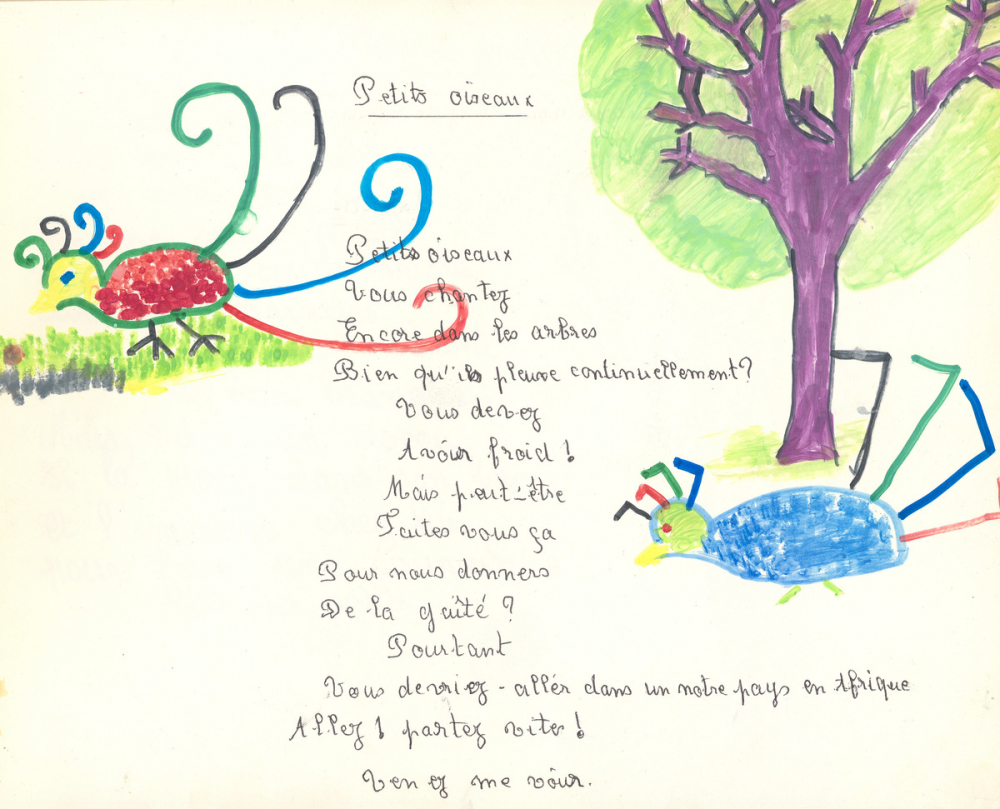 Petits oiseaux
Petits oiseaux
Vous chantez
Encore dans les arbres
Bien qu'ils pleuve continuellement?
Vous devez
Avoir froid !
Mais peut-être
Faites vous ça
Pour nous donners
De la gaîté ?
Pourtant
Vous devriez - allér dans un notre pays en Afrique
Allez ! partez vite !
Venez me voir.